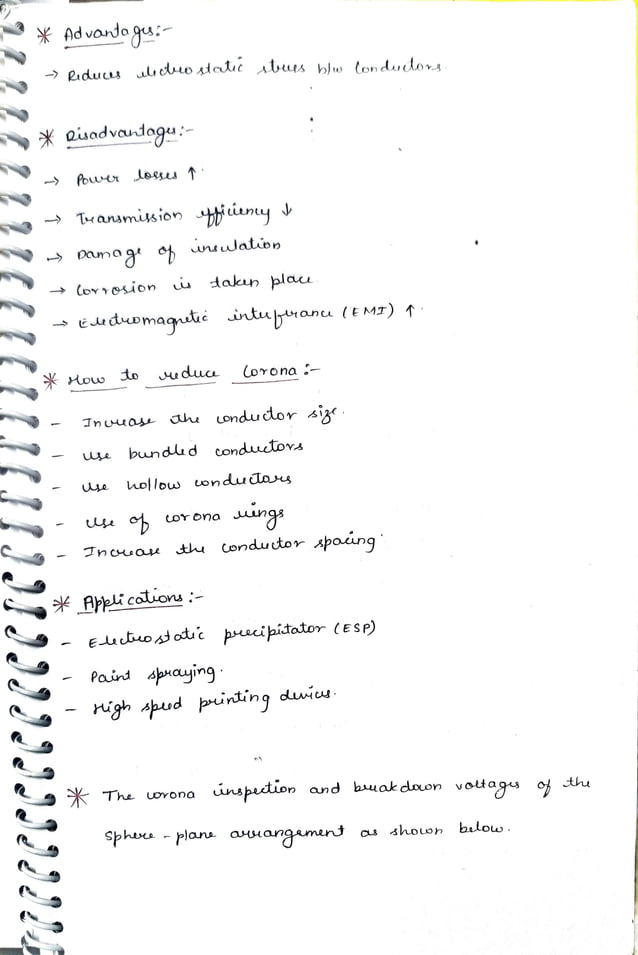 * Advantages:-
→ Reduces electrostatic stress b/w conductors
* Disadvantages:-
→ Power losses ↑
→ Transmission efficiency ↓
→ Damage of insulation
→ Corrosion is taken place
→ Electromagnetic interference (EMI) ↑
* How to reduce Corona:-
- Increase the conductor size.
- use bundled conductors
- use hollow conductors
- use of corona rings
- Increase the conductor spacing
* Applications:-
- Electrostatic precipitator (ESP)
- Paint spraying.
- High speed printing devices.
* The corona inspection and breakdown voltages of the
sphere-plane arrangement as shown below.